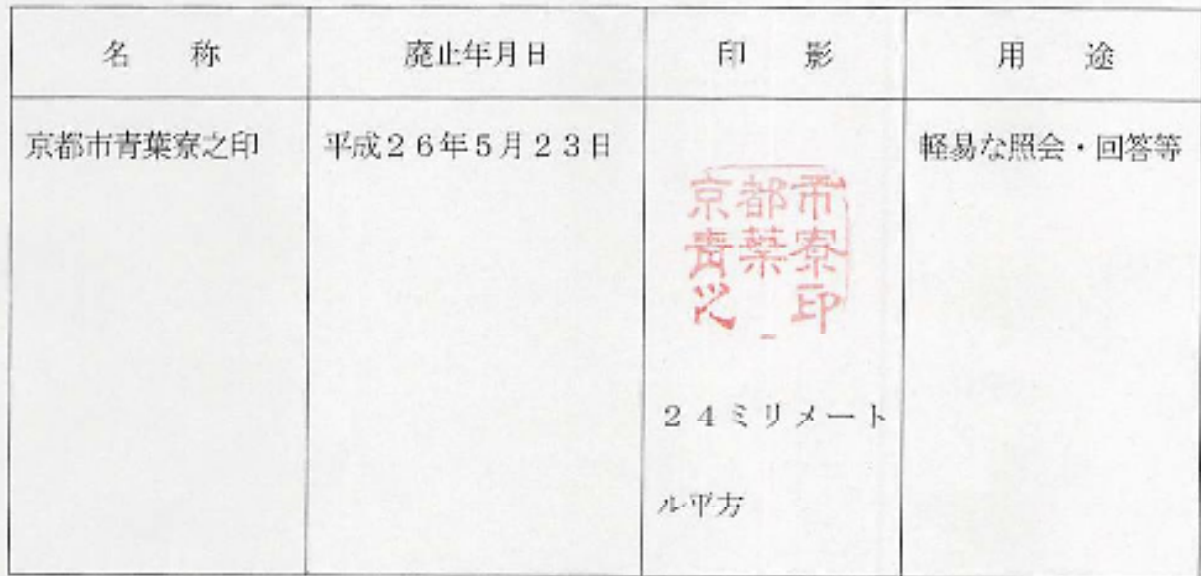 名　称
廃止年月日
印　影
用　途
京都市青葉寮之印
平成２６年５月２３日
京都市
青葉寮
之印
２４ミリメート
ル平方
軽易な照会・回答等